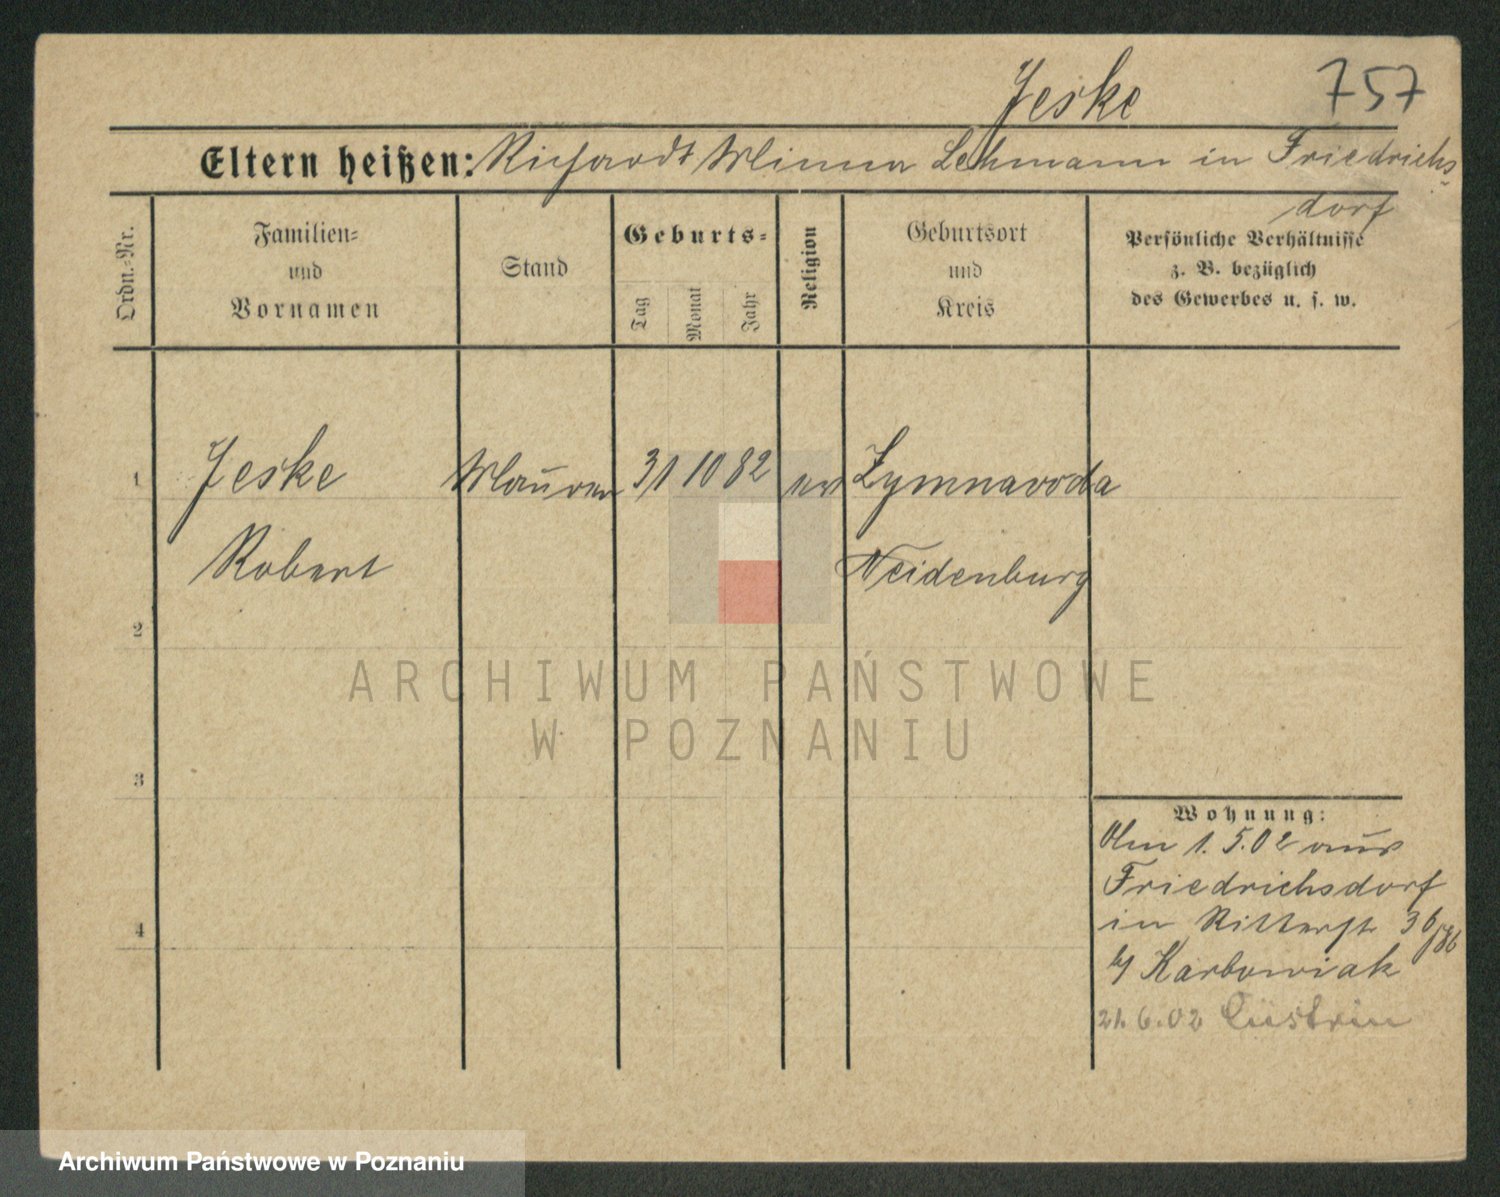 Jeske 757
Eltern heißen: Richardt Minna Lehmann in Friedrichs-
dorf
Ordn.-Nr.
Familien-
und
Vornamen
Stand
Geburts-
Tag
Monat
Jahr
Religion
Geburtsort
und
Kreis
Persönliche Verhältnisse
z. B. bezüglich
des Gewerbes u. s. w.
1 Jeske Maurer 31 10 82 ev Zymnawoda
Robert Neidenburg
2
3
4
Wohnung:
Am 1. 5. 02 aus
Friedrichsdorf
in Ritterst 36
b/ Karbowiak
21. 6. 02 Cüstrin
ARCHIWUM PAŃSTWOWE
W POZNANIU
Archiwum Państwowe w Poznaniu